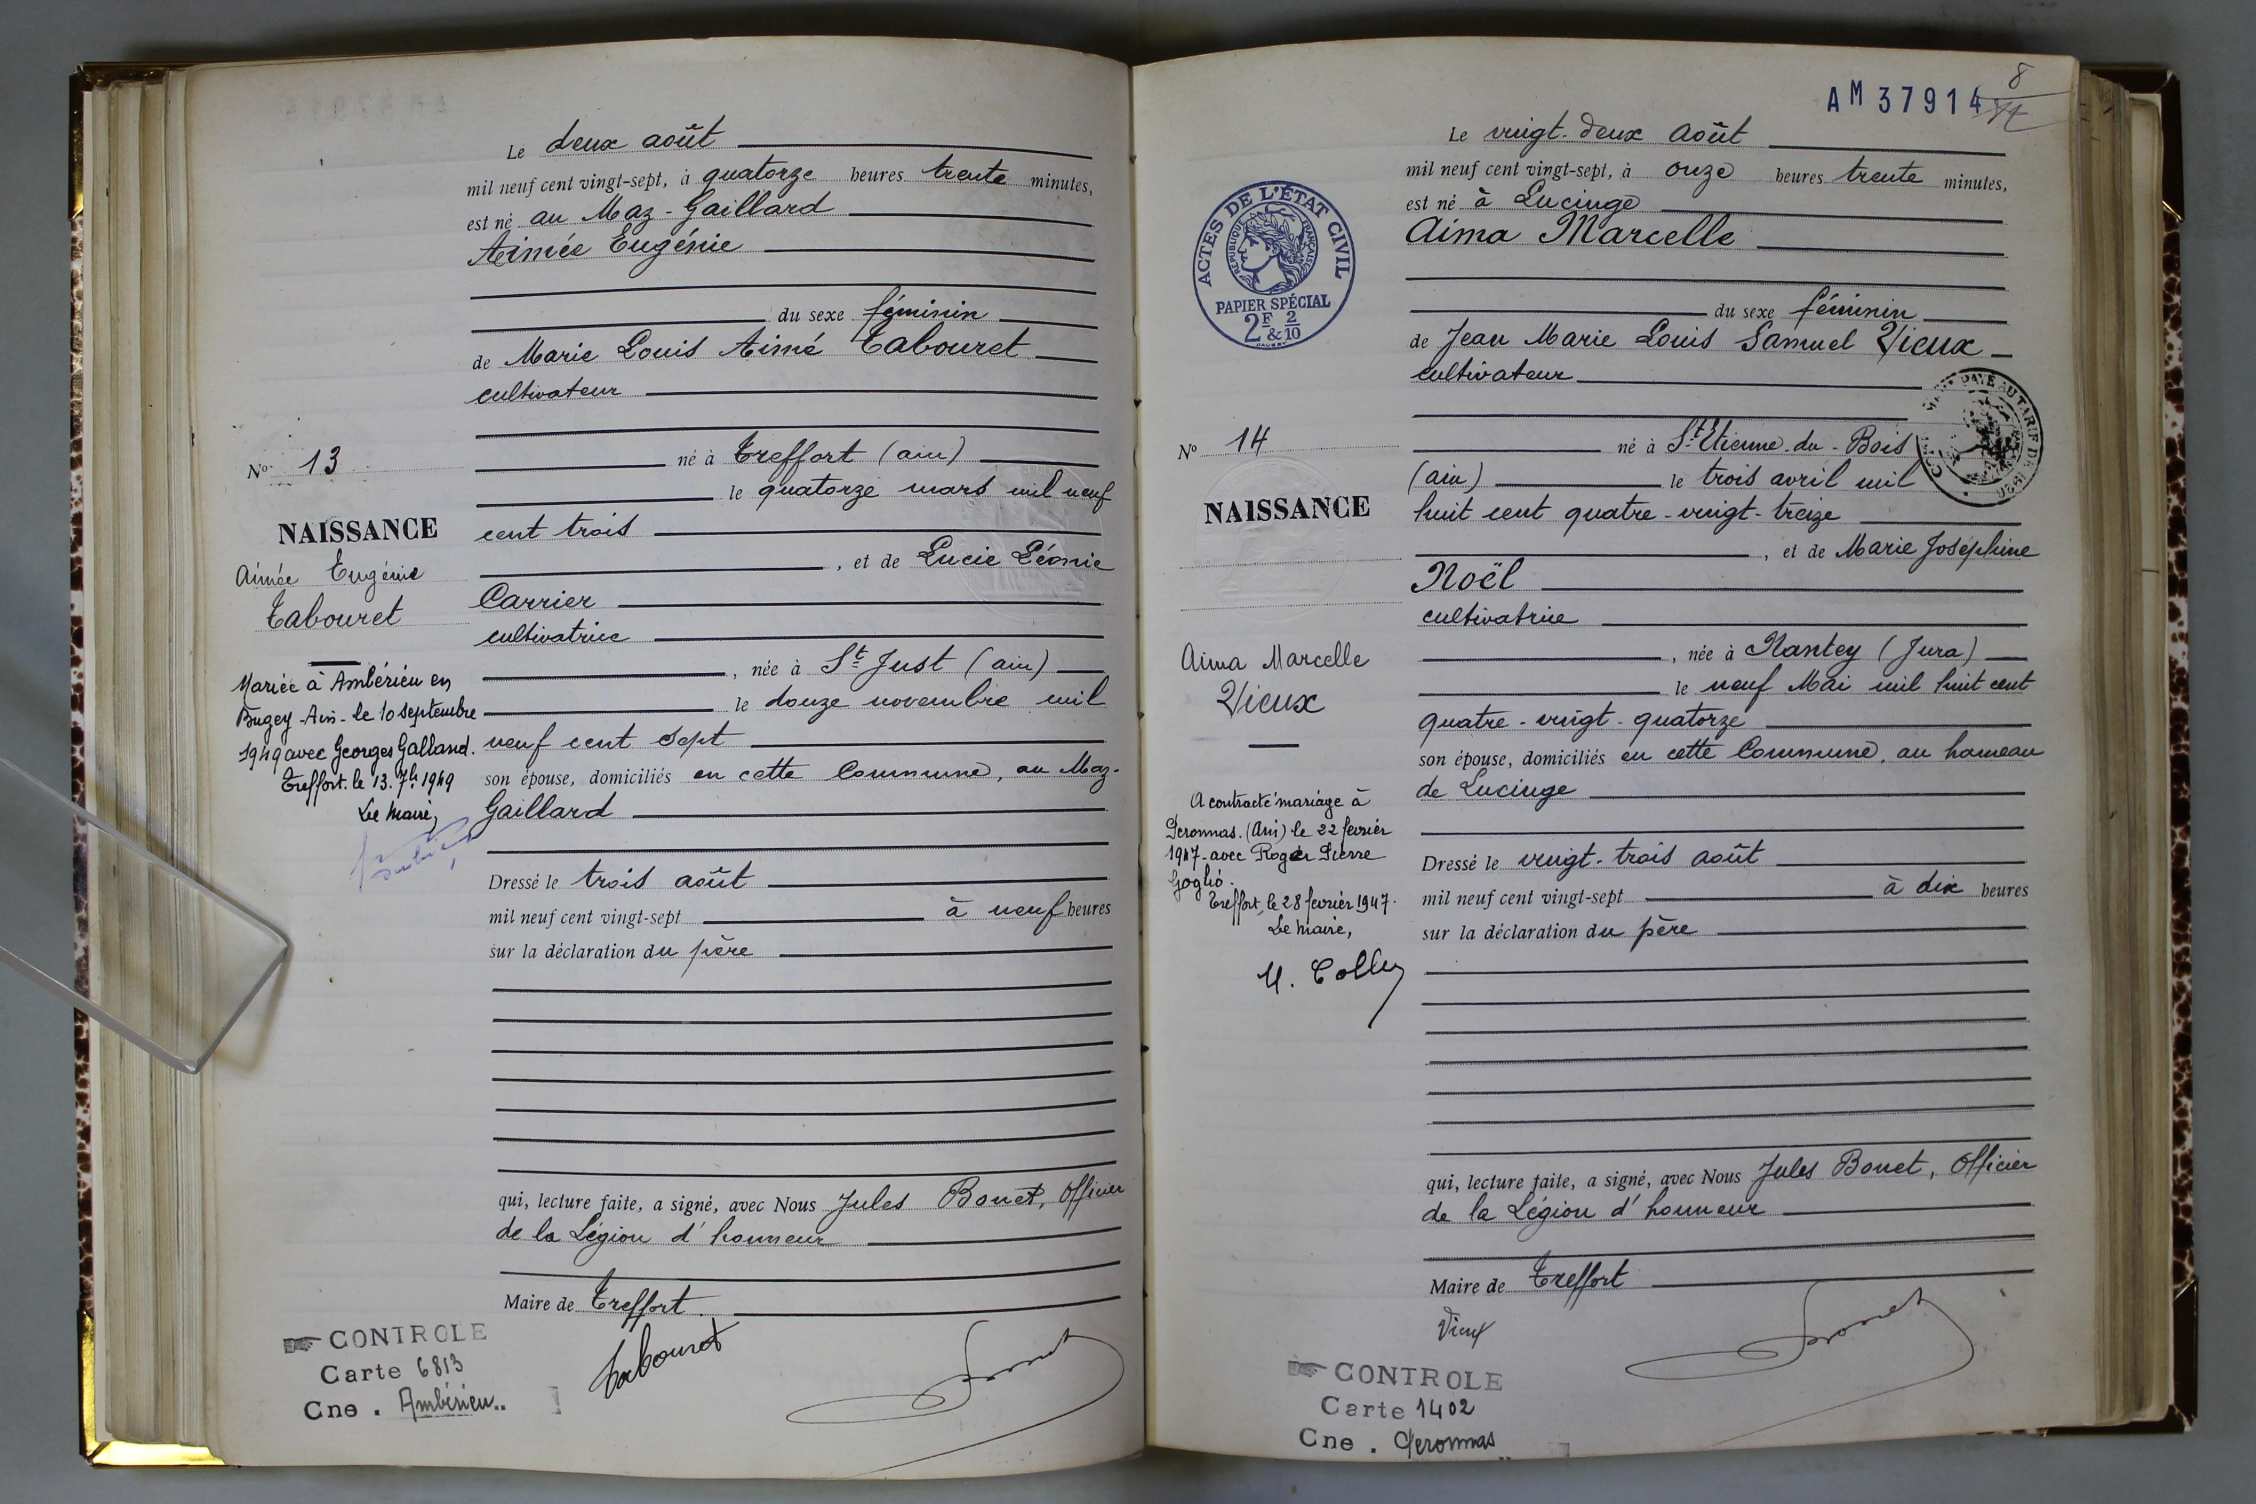 Le deux août
mil neuf cent vingt-sept, à quatorze heures trente minutes,
est né au Maz-Gaillard
Aimée Eugénie
du sexe féminin
de Marie Louis Aimé Tabouret
cultivateur
né à Treffort (ain)
le quatorze mars mil neuf
cent trois
, et de Lucie Léonie
Carrier
cultivatrice
, née à St Just (ain)
le douze novembre mil
neuf cent sept
son épouse, domiciliés en cette Commune, au Maz-
Gaillard
Dressé le trois août
mil neuf cent vingt-sept à neuf heures
sur la déclaration du père
qui, lecture faite, a signé, avec Nous Jules Bonet, Officier
de la Légion d'honneur
Maire de Treffort.
Tabouret
No 13
NAISSANCE
Aimée Eugénie
Tabouret
Mariée à Ambérieu en
Bugey-Ain-le 10 septembre
1949 avec Georges Galland.
Treffort. le 13. 7b 1949
Le Maire,
CONTROLE
Carte 6813
Cne. Ambérieu..
AM 37914
8
Le vingt-deux août
mil neuf cent vingt-sept, à onze heures trente minutes,
est né à Lucinge
Aima Marcelle
du sexe féminin
de Jean Marie Louis Samuel Vieux
cultivateur
né à St-Etienne-du-Bois
(ain) le trois avril mil
huit cent quatre-vingt-treize
, et de Marie Joséphine
Noël
cultivatrice
, née à Nantey (Jura)
le neuf Mai mil huit cent
quatre-vingt-quatorze
son épouse, domiciliés en cette Commune, au hameau
de Lucinge
Dressé le vingt-trois août
mil neuf cent vingt-sept à dix heures
sur la déclaration du père
qui, lecture faite, a signé, avec Nous Jules Bonet, Officier
de la Légion d'honneur
Maire de Treffort
Vieux
ACTES DE L'ÉTAT CIVIL
RÉPUBLIQUE FRANÇAISE
PAPIER SPÉCIAL
2F & 2/10
PAYÉ AU TARIF DE
No 14
NAISSANCE
Aima Marcelle
Vieux
A contracté mariage à
Peronnas. (Ain) le 22 février
1947-avec Roger Pierre
Goglio.
Treffort, le 28 février 1947.
Le Maire,
CONTROLE
Carte 1402
Cne. Peronnas